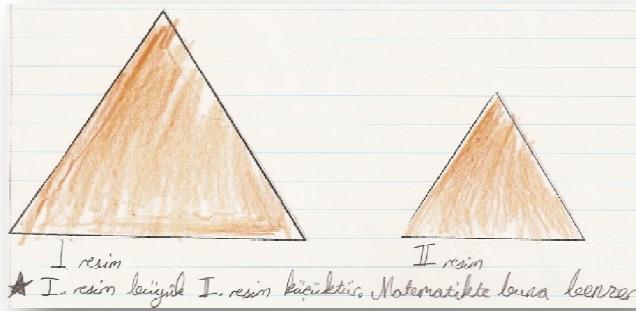 I resim
II resim
★ I. resim büyük II. resim küçüktür. Matematikte buna benzer